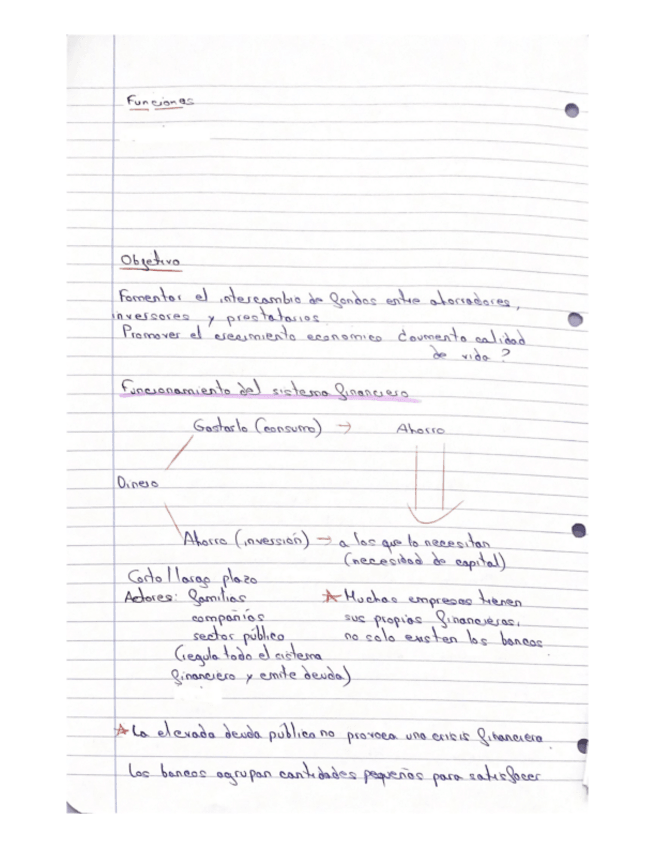 Funciones
Objetivo
Fomentar el intercambio de fondos entre ahorradores,
inversores y prestatarios
Promover el crecimiento economico ¿aumenta calidad
de vida?
Funcionamiento del sistema financiero
Gastarlo (consumo) → Ahorro
Dinero
Ahorro (inversión) → a los que lo necesitan
(necesidad de capital)
Corto/largo plazo
Actores: familias
compañias
sector público
(regula todo el sistema
financiero y emite deuda)
★ Muchas empresas tienen
sus propias financieras,
no solo existen los bancos
★ La elevada deuda publica no provoca una crisis financiera
Los bancos agrupan cantidades pequeñas para satisfacer